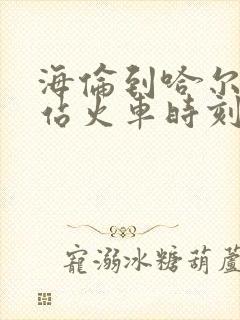 海倫到哈尔
佔火車時刻
寵溺冰糖葫蘆